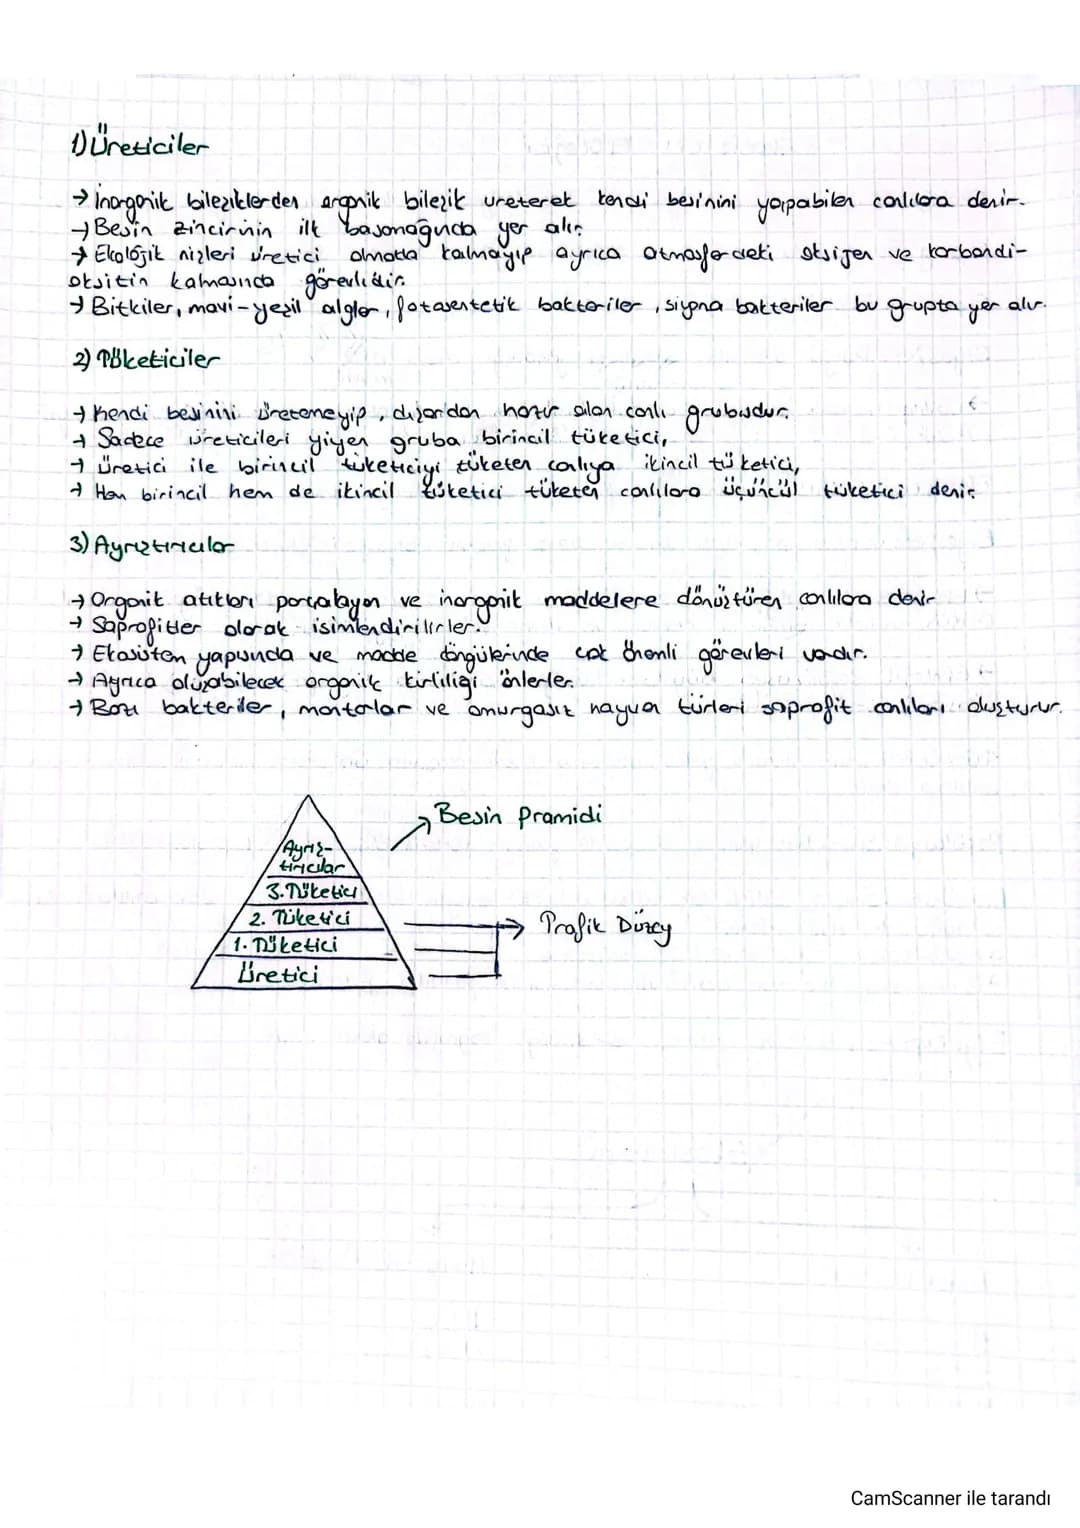 1) Üreticiler
→ İnorganik bileşiklerden organik bileşik üreterek kendi besinini yapabilen canlılara denir.
→ Besin zincirinin ilk basamağında yer alır.
→ Ekolojik nişleri üretici olmakla kalmayıp ayrıca atmosferdeki oksijen ve karbondi-
oksitin kalmasında görevlidir.
→ Bitkiler, mavi-yeşil algler, fotosentetik bakteriler, siyona bakteriler bu grupta yer alır.
2) Tüketiciler
→ Kendi besinini üretemeyip, dışardan hazır alan canlı grubudur.
→ Sadece üreticileri yiyen gruba birincil tüketici,
→ Üretici ile birincil tüketiciyi tüketen canlıya ikincil tüketici,
→ Hem birincil hem de ikincil tüketici tüketen canlılara üçüncül tüketici denir.
3) Ayrıştırıcılar
→ Organik atıkları parçalayan ve inorganik maddelere dönüştüren canlılara denir
→ Saprofitler olarak isimlendirilirler.
→ Ekosistem yapısında ve madde döngülerinde çok önemli görevleri vardır.
→ Ayrıca oluşabilecek organik kirliliği önlerler.
→ Bazı bakteriler, mantarlar ve omurgasız hayvan türleri saprofit canlıları oluşturur.
Besin Pramidi
Ayrış-
tırıcılar
3. Tüketici
2. Tüketici
1. Tüketici
Üretici
Trofik Düzey
CamScanner ile tarandı